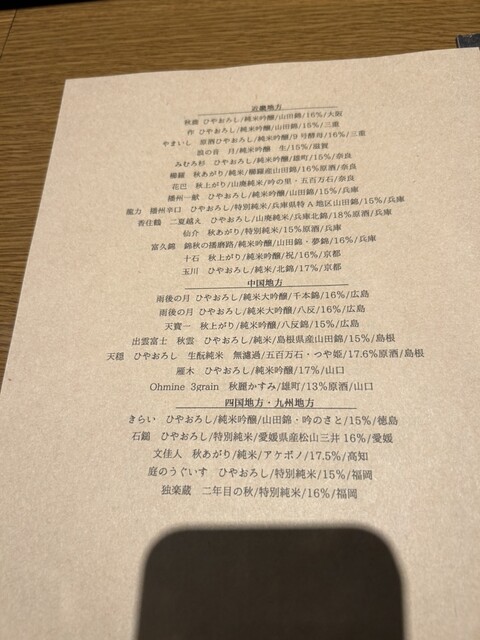 近畿地方
秋鹿 ひやおろし/純米吟醸/山田錦/16%/大阪
作 ひやおろし/純米吟醸/山田錦/15%/三重
やまいし 原酒ひやおろし/純米吟醸/9号酵母/16%/三重
浪の音 月/純米吟醸 生/15%/滋賀
みむろ杉 ひやおろし/純米吟醸/雄町/15%/奈良
櫛羅 秋あがり/純米/櫛羅産山田錦/16%原酒/奈良
花巴 秋上がり/山廃純米/吟の里・五百万石/奈良
播州一献 ひやおろし/純米吟醸/山田錦/15%/兵庫
龍力 播州辛口 ひやおろし/特別純米/兵庫県特A地区山田錦/15%/兵庫
香住鶴 二夏越え ひやおろし/山廃純米/兵庫北錦/18%原酒/兵庫
仙介 秋あがり/特別純米/15%原酒/兵庫
富久錦 錦秋の播磨路/純米吟醸/山田錦・夢錦/16%/兵庫
十石 秋上がり/純米吟醸/祝/16%/京都
玉川 ひやおろし/純米/北錦/17%/京都
中国地方
雨後の月 ひやおろし/純米大吟醸/千本錦/16%/広島
雨後の月 ひやおろし/純米大吟醸/八反/16%/広島
天寶一 秋上がり/純米吟醸/八反錦/15%/広島
出雲富士 秋雲 ひやおろし/純米/島根県産山田錦/15%/島根
天穏 ひやおろし 生酛純米 無濾過/五百万石・つや姫/17.6%原酒/島根
雁木 ひやおろし/純米吟醸/17%/山口
Ohmine 3grain 秋麗かすみ/雄町/13%原酒/山口
四国地方・九州地方
きらい ひやおろし/純米吟醸/山田錦・吟のさと/15%/徳島
石鎚 ひやおろし/特別純米/愛媛県産松山三井 16%/愛媛
文佳人 秋あがり/純米/アケボノ/17.5%/高知
庭のうぐいす ひやおろし/特別純米/15%/福岡
独楽蔵 二年目の秋/特別純米/16%/福岡